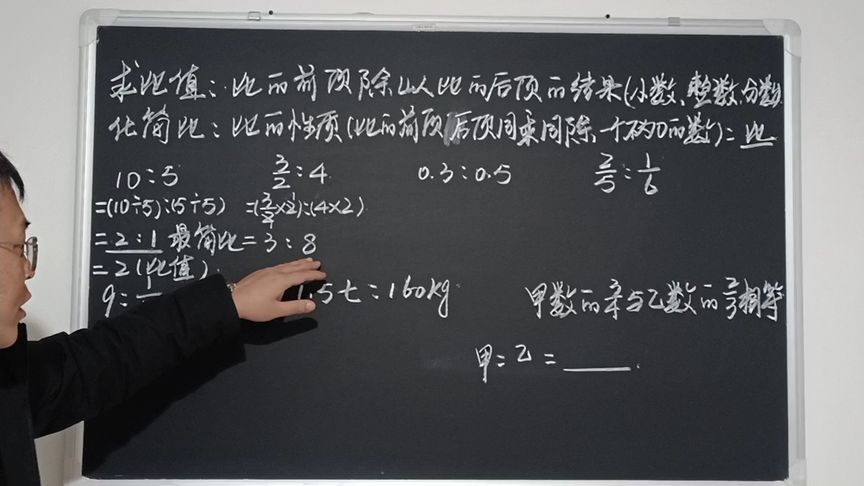 求比值：比的前项除以比的后项的结果(小数、整数、分数)
化简比：比的性质(比的前项后项同乘同除一个不为0的数)=比
10:5 3/2:4 0.3:0.5 2/5:1/6
=(10÷5):(5÷5) =(3/2×2):(4×2)
=2:1最简比 =3:8
=2(比值)
9: .5t:160kg 甲数的3/4与乙数的2/3相等
甲:乙=____.